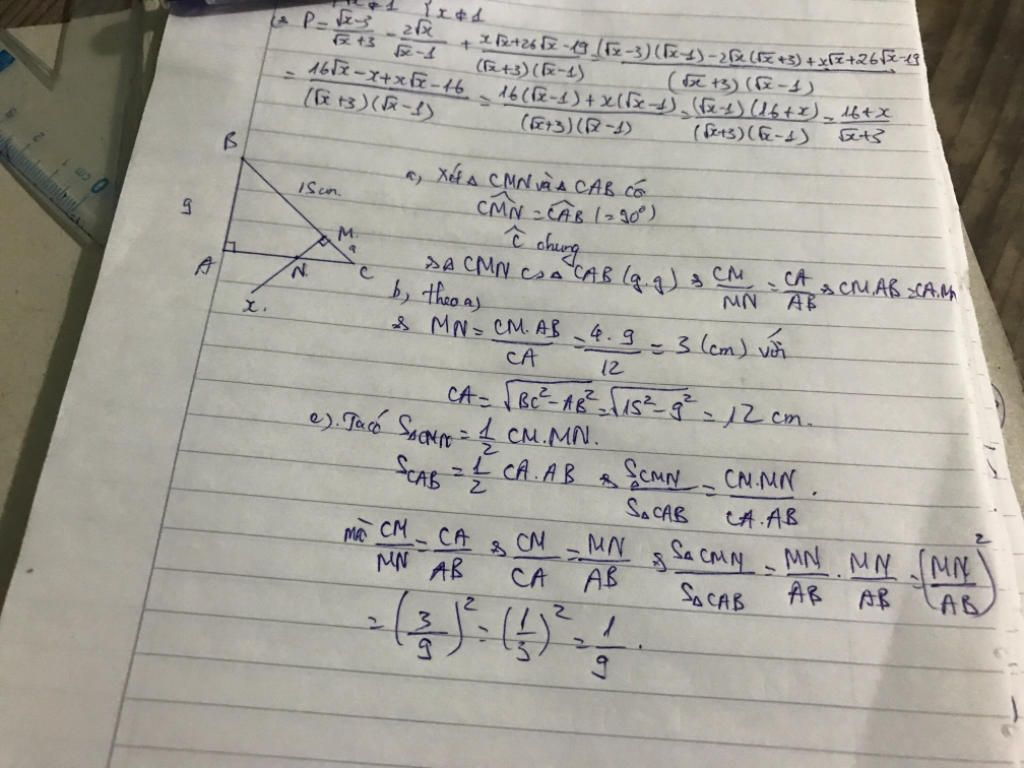 x ≠ 1 {x ≠ 1
⇒ P = \frac{√x-3}{√x+3} - \frac{2√x}{√x-1} + \frac{x√x+26√x-19}{(√x+3)(√x-1)} = \frac{(√x-3)(√x-1)-2√x(√x+3)+x√x+26√x-19}{(√x+3)(√x-1)}
= \frac{16√x-x+x√x-16}{(√x+3)(√x-1)} = \frac{16(√x-1)+x(√x-1)}{(√x+3)(√x-1)} = \frac{(√x-1)(16+x)}{(√x+3)(√x-1)} = \frac{16+x}{√x+3}
B
15cm
9
M
A
N
C
x
a, Xét Δ CMN và Δ CAB có
\hat{CMN} = \hat{CAB} (=90°)
\hat{C} chung
⇒ Δ CMN ∽ Δ CAB (g.g) ⇒ \frac{CM}{MN} = \frac{CA}{AB} ⇒ CM.AB = CA.MN
b, theo a,
⇒ MN = \frac{CM.AB}{CA} = \frac{4.9}{12} = 3 (cm) với
CA = \sqrt{BC²-AB²} = \sqrt{15²-9²} = 12 cm.
c). Ta có S_{ΔCMN} = \frac{1}{2} CM.MN.
S_{CAB} = \frac{1}{2} CA.AB ⇒ \frac{S_{ΔCMN}}{S_{ΔCAB}} = \frac{CM.MN}{CA.AB}.
mà \frac{CM}{MN} = \frac{CA}{AB} ⇒ \frac{CM}{CA} = \frac{MN}{AB} ⇒ \frac{S_{ΔCMN}}{S_{ΔCAB}} = \frac{MN}{AB} . \frac{MN}{AB} = (\frac{MN}{AB})²
= (\frac{3}{9})² = (\frac{1}{3})² = \frac{1}{9}.